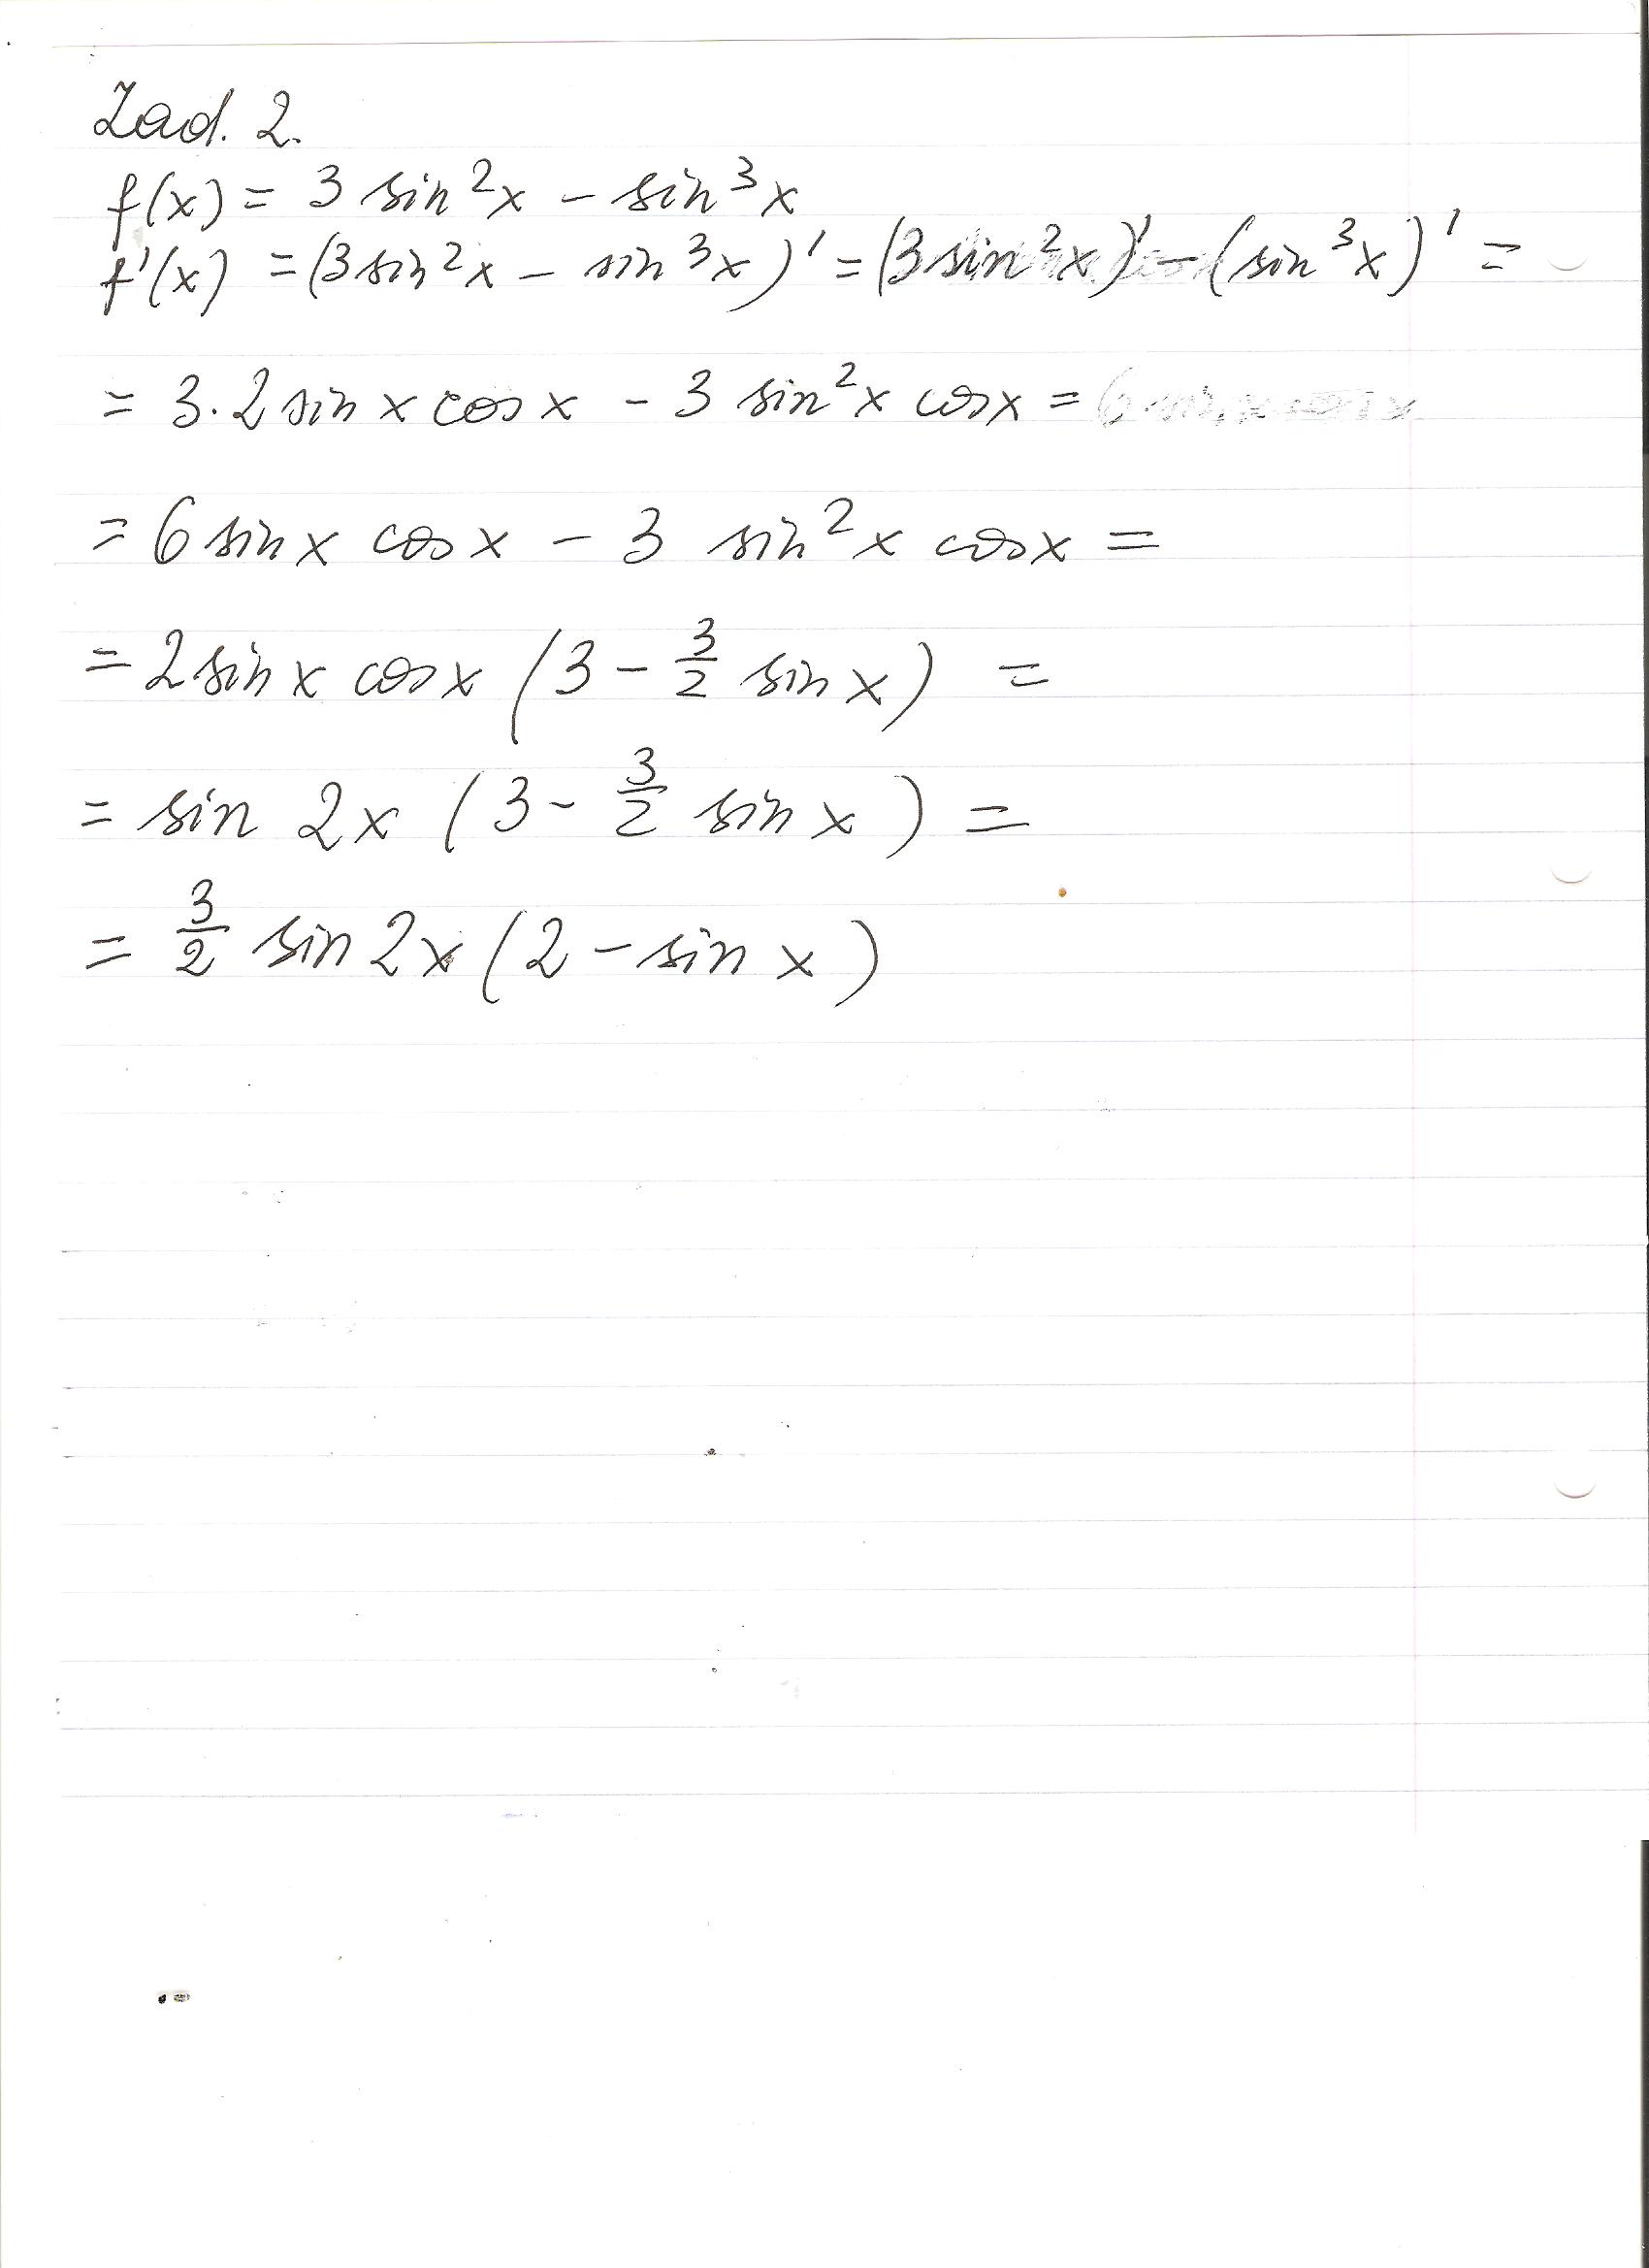 Zad. 2.
f(x) = 3 sin²x - sin³x
f'(x) = (3 sin²x - sin³x)' = (3 sin²x)' - (sin³x)' =
= 3·2 sin x cos x - 3 sin²x cos x =
= 6 sin x cos x - 3 sin²x cos x =
= 2 sin x cos x (3 - 3/2 sin x) =
= sin 2x (3 - 3/2 sin x) =
= 3/2 sin 2x (2 - sin x)